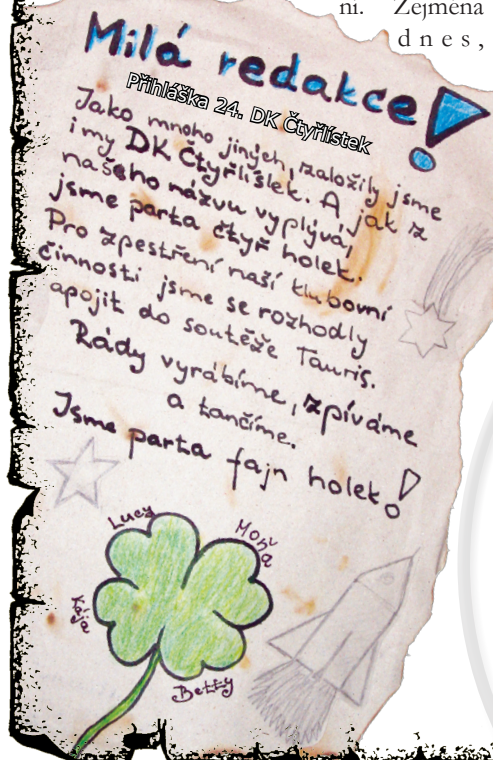 ní. Zejména
dnes,
Milá redakce!
Přihláška 24. DK Čtyřlístek
Jako mnoho jiných, založily jsme
i my DK Čtyřlístek. A jak z
našeho názvu vyplývá,
jsme parta čtyř holek.
Pro zpestření naší klubovní
činnosti jsme se rozhodly
apojit do soutěže Tauris.
Rády vyrábíme, zpíváme
a tančíme.
Jsme parta fajn holek!
Lucy
Moňa
Kája
Betty